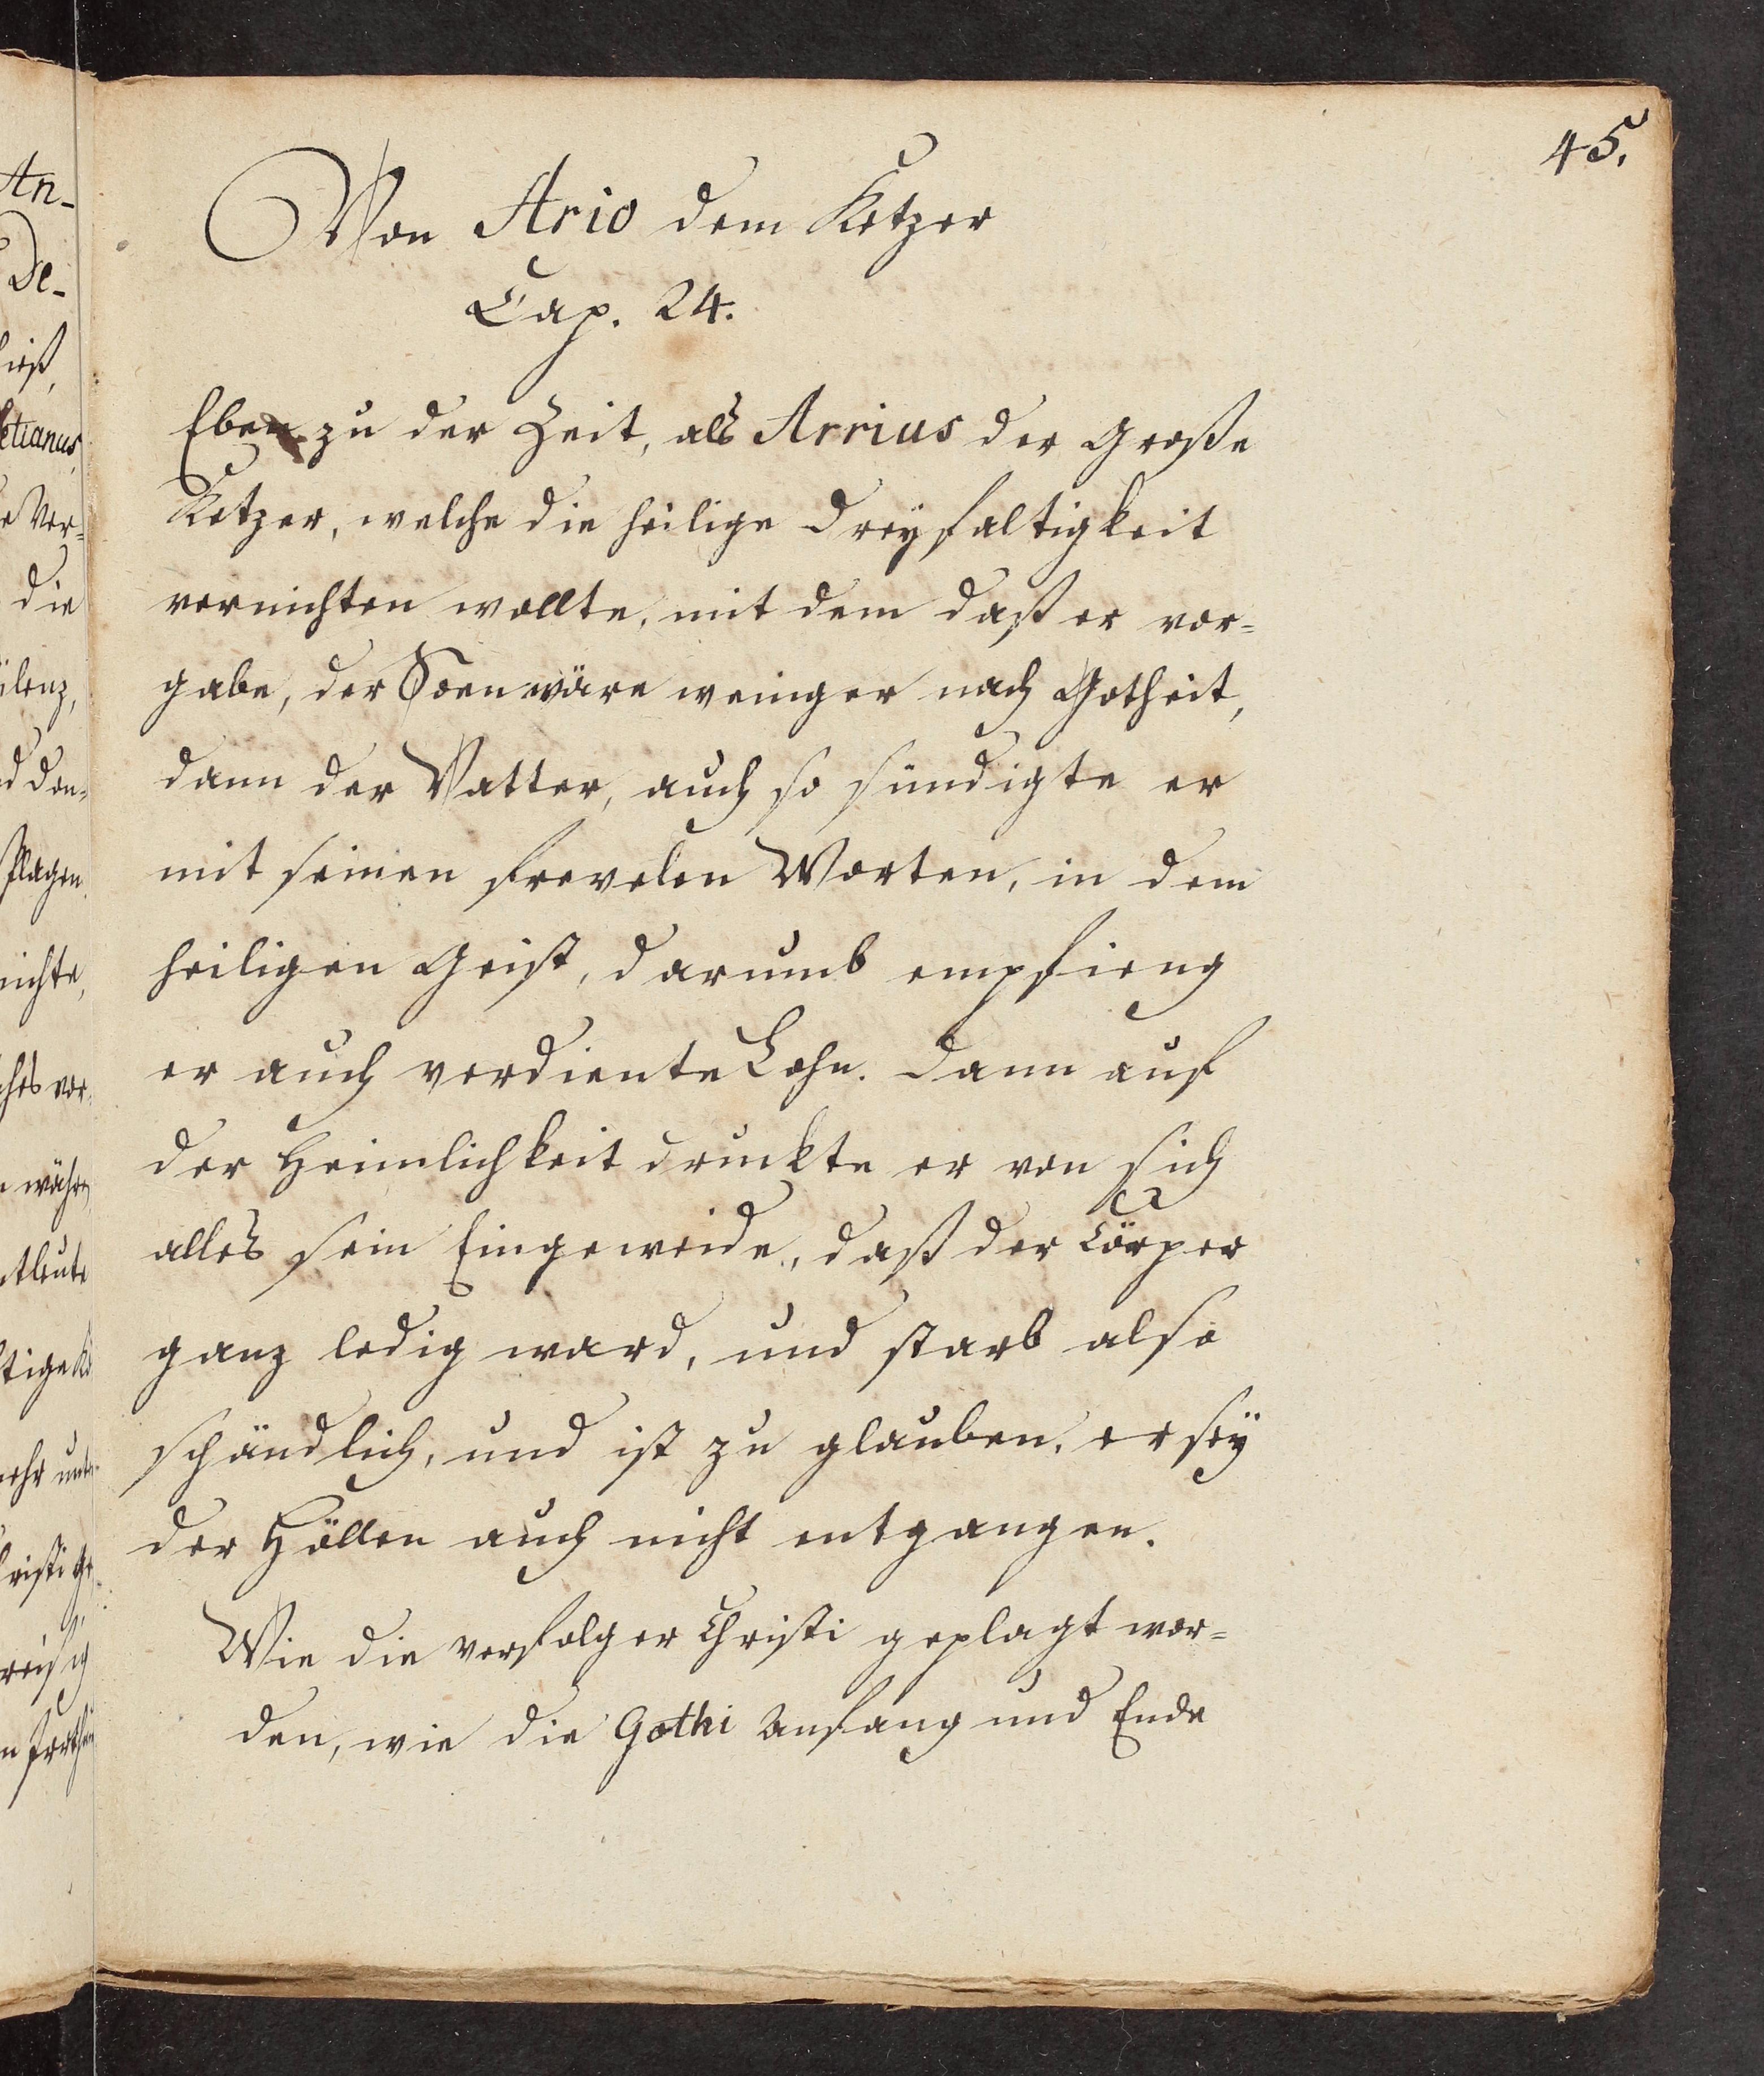 45.
Von Ario dem Ketzer
Cap. 24.
Eben zu der Zeit, als Arrius der große
Ketzer, welche die heilige Dreyfaltigkeit
vernichten wollte, mit dem daß er vor=
gabe, der Soen wäre weinger nach Gotheit,
dann der Vatter, auch so sündigte er
mit seinen frevelen Worten, in dem
heiligen Geist, darumb empfieng
er auch verdiente Lohn. Dann auf
der Heimlichkeit druckte er von sich
alles sein Eingeweide, daß der Cörper
ganz ledig ward, und starb also
schändlich, und ist zu glauben, er seÿ
der Höllen auch nicht entgangen.
Wie die verfolger Christi geplagt wor=
den, wie die Gothi Anfang und Ende
An-
De-
ließ,
etianus,
Ver=
die
ilenz,
nichte,